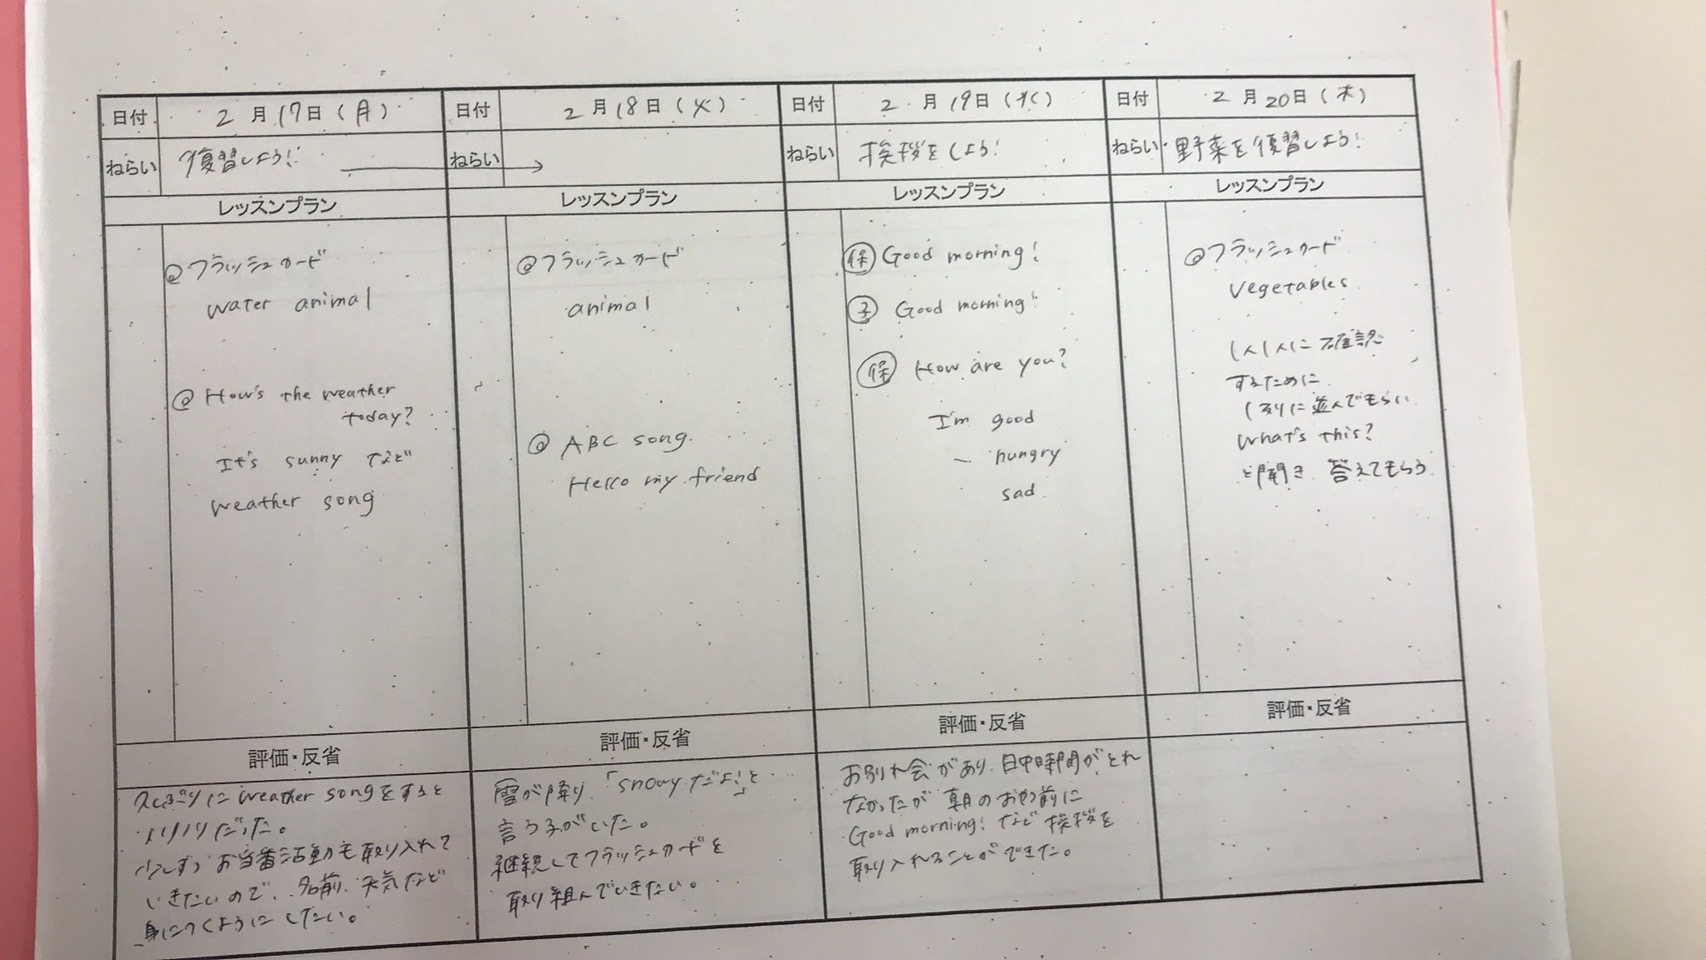 日付 2月17日(月)
ねらい 復習しよう!
レッスンプラン
@フラッシュカード
water animal
@ How's the weather
today?
It's sunny など
weather song
評価・反省
久しぶりにweather songをすると
ノリノリだった。
少しずつお当番活動も取り入れて
いきたいので、名前、天気など
身につくようにしたい。
日付 2月18日(火)
ねらい →
レッスンプラン
@フラッシュカード
animal
@ ABC song
Hello my friend
評価・反省
雪が降り、「snowyだよ!」と
言う子がいた。
継続してフラッシュカードを
取り組んでいきたい。
日付 2月19日(水)
ねらい 挨拶をしよう!
レッスンプラン
保 Good morning!
子 Good morning!
保 How are you?
I'm good
~ hungry
sad
評価・反省
お別れ会があり、日中時間がとれ
なかったが朝のおやつ前に
Good morning! など挨拶を
取り入れることができた。
日付 2月20日(木)
ねらい 野菜を復習しよう!
レッスンプラン
@フラッシュカード
vegetables
1人1人に確認
するために
1列に並んでもらい
What's this?
と聞き、答えてもらう
評価・反省